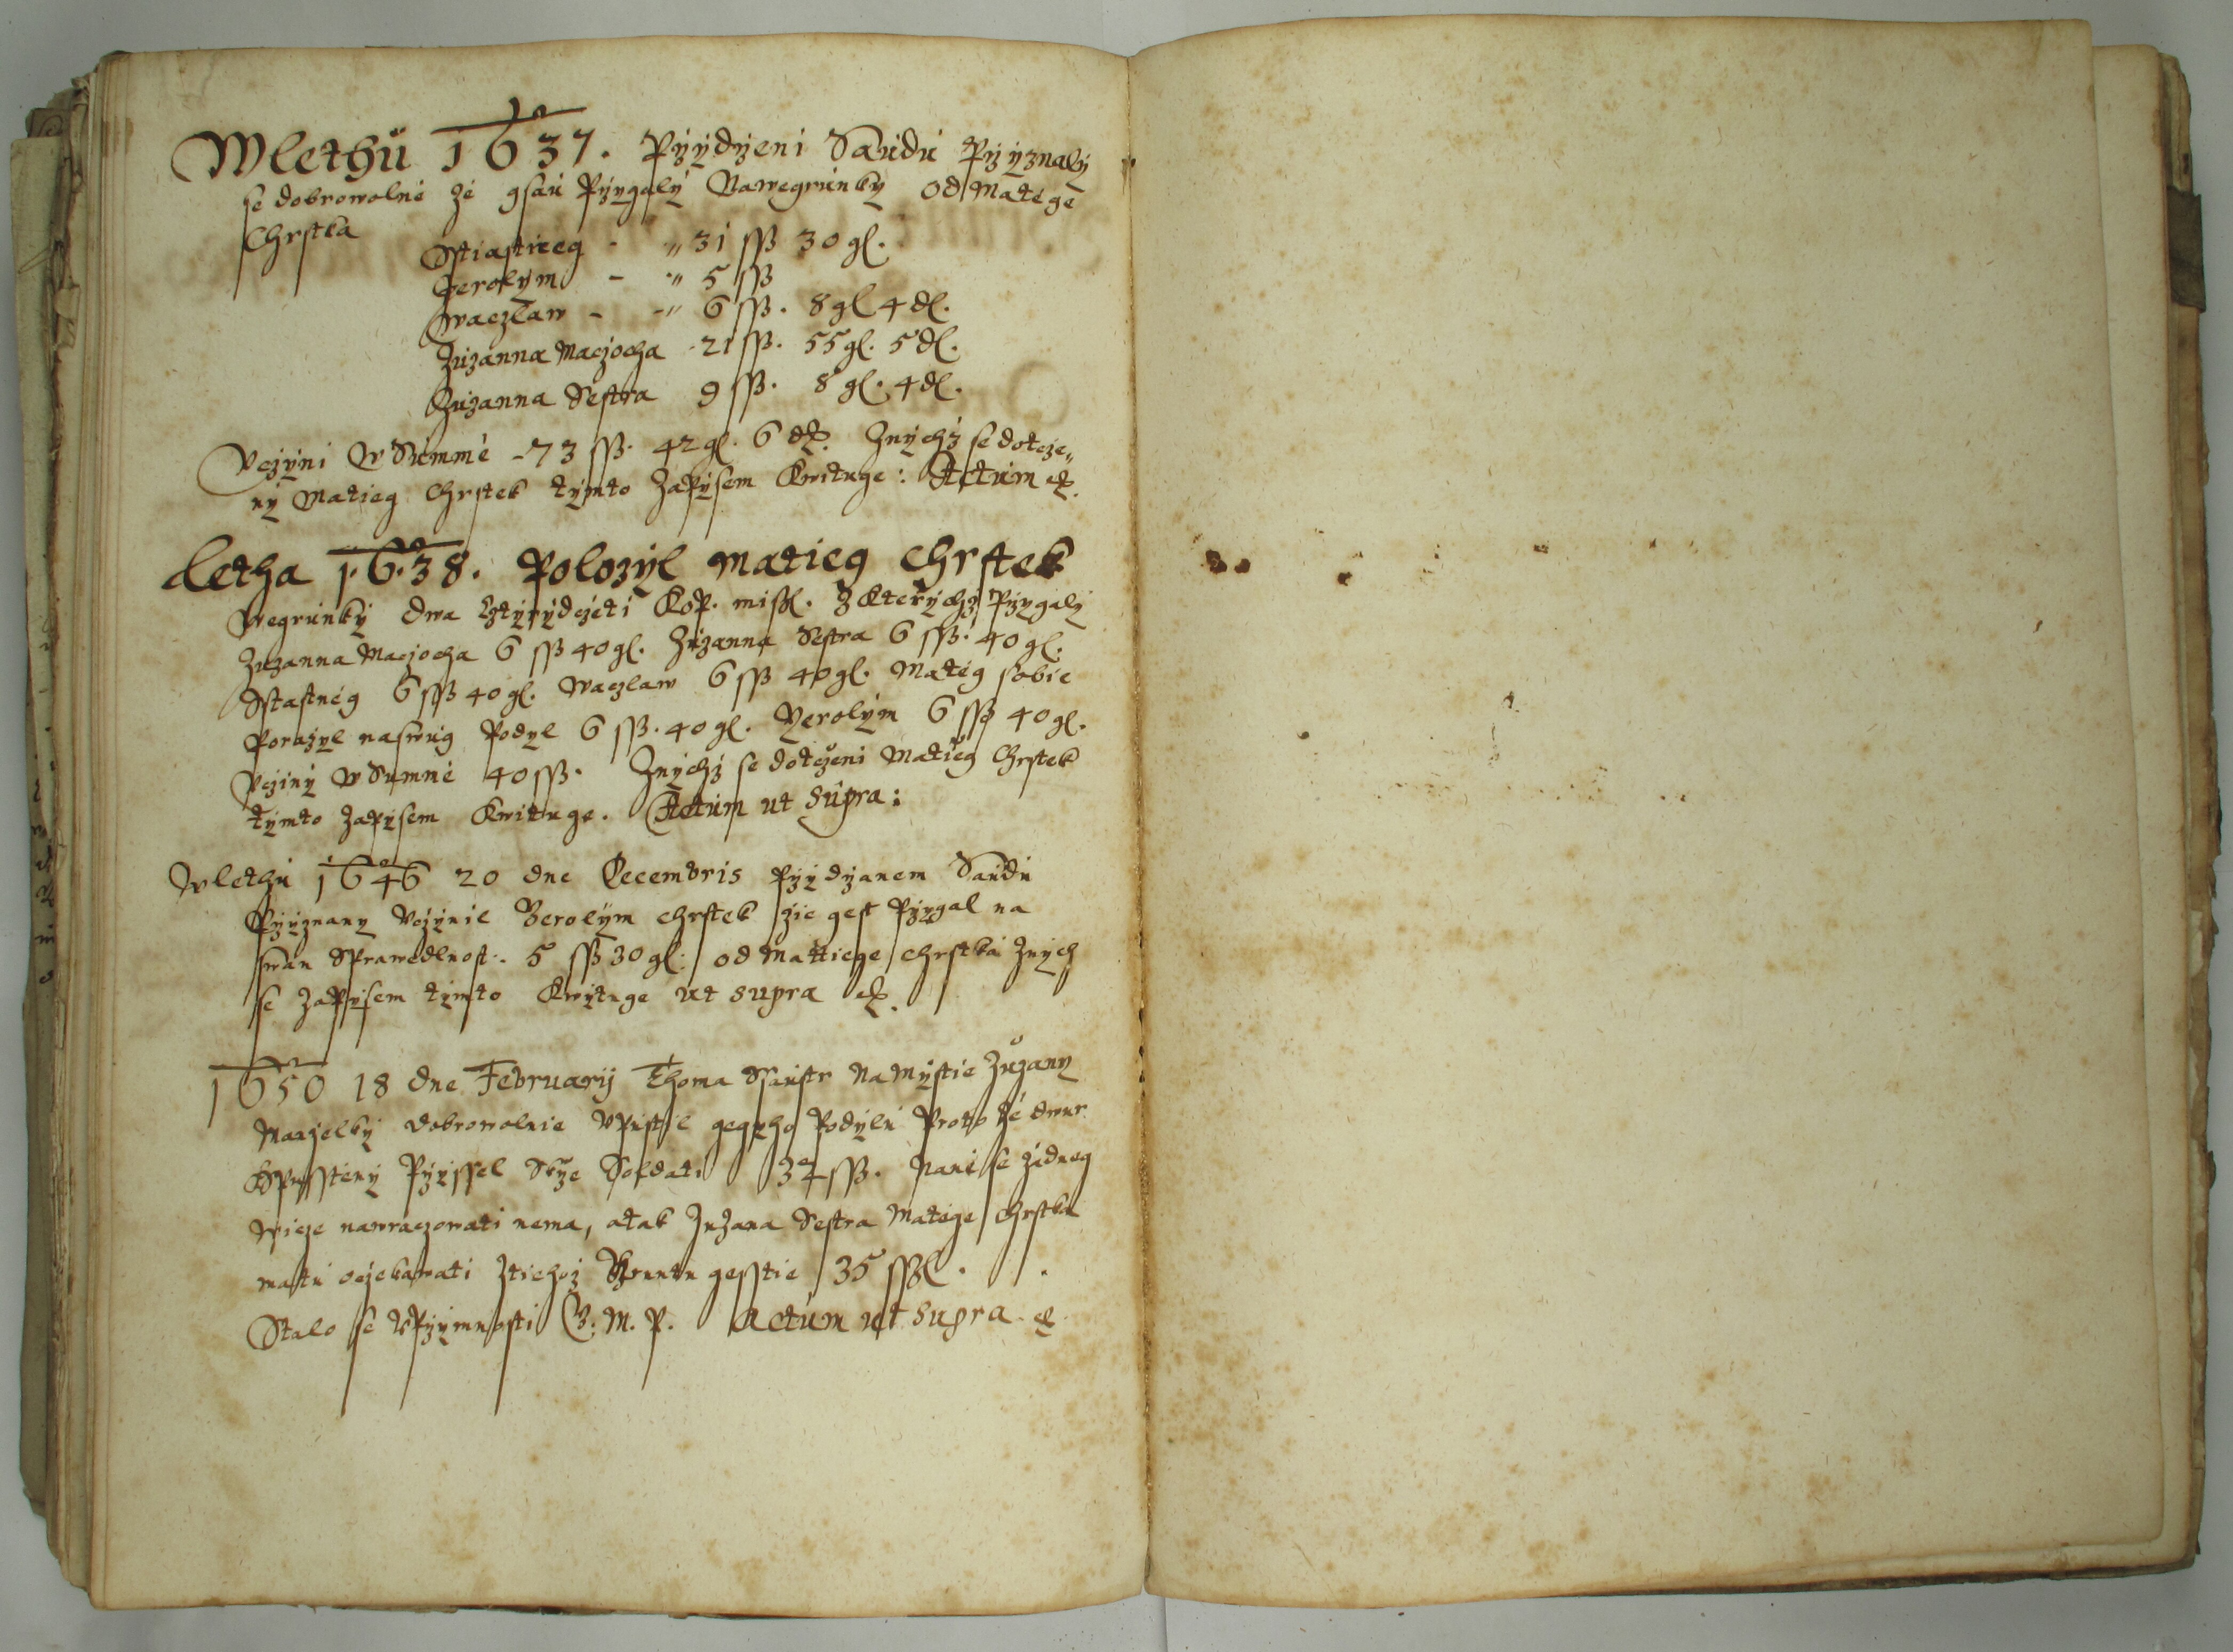 Wlethů 1637. Pržydženi Saudu Pržyznaly
se dobrowolně že gsau Pržygaly Nawegrunky od Matěge
Chrstka
Sstiastneg - „ 31 ssß 30 gl.
Jerolym - „ 5 ssß
Waczlaw - „ 6 ssß. 8 gl 4 dl.
Zuzanna Maczocha 21 ssß. 55 gl. 5 dl.
Zuzanna Sestra 9 ssß. 8 gl. 4 dl.
Vczyni W Summě - 73 ssß. 42 gl. 6 d. Znychž se dotcze„
ny Matieg Chrstek tymto Zapysem Kwituge: Actum
Letha 1638. Položyl Matieg Chrstek
Wegrunky dwa Cztyrydczeti Kop. miss. Z kterychž Pržygaly
Zuzanna Maczocha 6 ssß 40 gl. Zuzanna Sestra 6 ssß. 40 gl.
Sstastněg 6 ssß 40 gl. Waczlaw 6 ssß 40 gl. Matěg sobie
Poražyl naswug Podyl 6 ssß. 40 gl. Yerolym 6 ssß 40 gl.
Vcziny W Summě 40 ssß. Znychž se dotczeni Matieg Chrstek
tymto Zapysem Kwituge. Actum ut supra:
Wlethu 1646 20 dne Decembris Pržydžanem Saudu
Pržyznany Vczynil Berolym Chrstek žie gest Pržygal na
swau Sprawedlnost. 5 ssß 30 gl. od Mattiege Chrstka Znych
se Zapysem tymto Kwytuge ut supra
1650 18 dne Februarij Thoma Na Mystie Zuzany
Manželky dobrowolnie Vpustil gegyho Podylu Proto že dwur
Pržyssel Skrze Soldati 34 ssß. Nani se židneg
Wicze nawraczowati nema, atak Zuzana Sestra Matěge Chrstka
matu oczekawati Ztiehož Gruntu gesstie 35 ssßl.
Stalo se VPržymnosti G. M. P. Actum ut supra